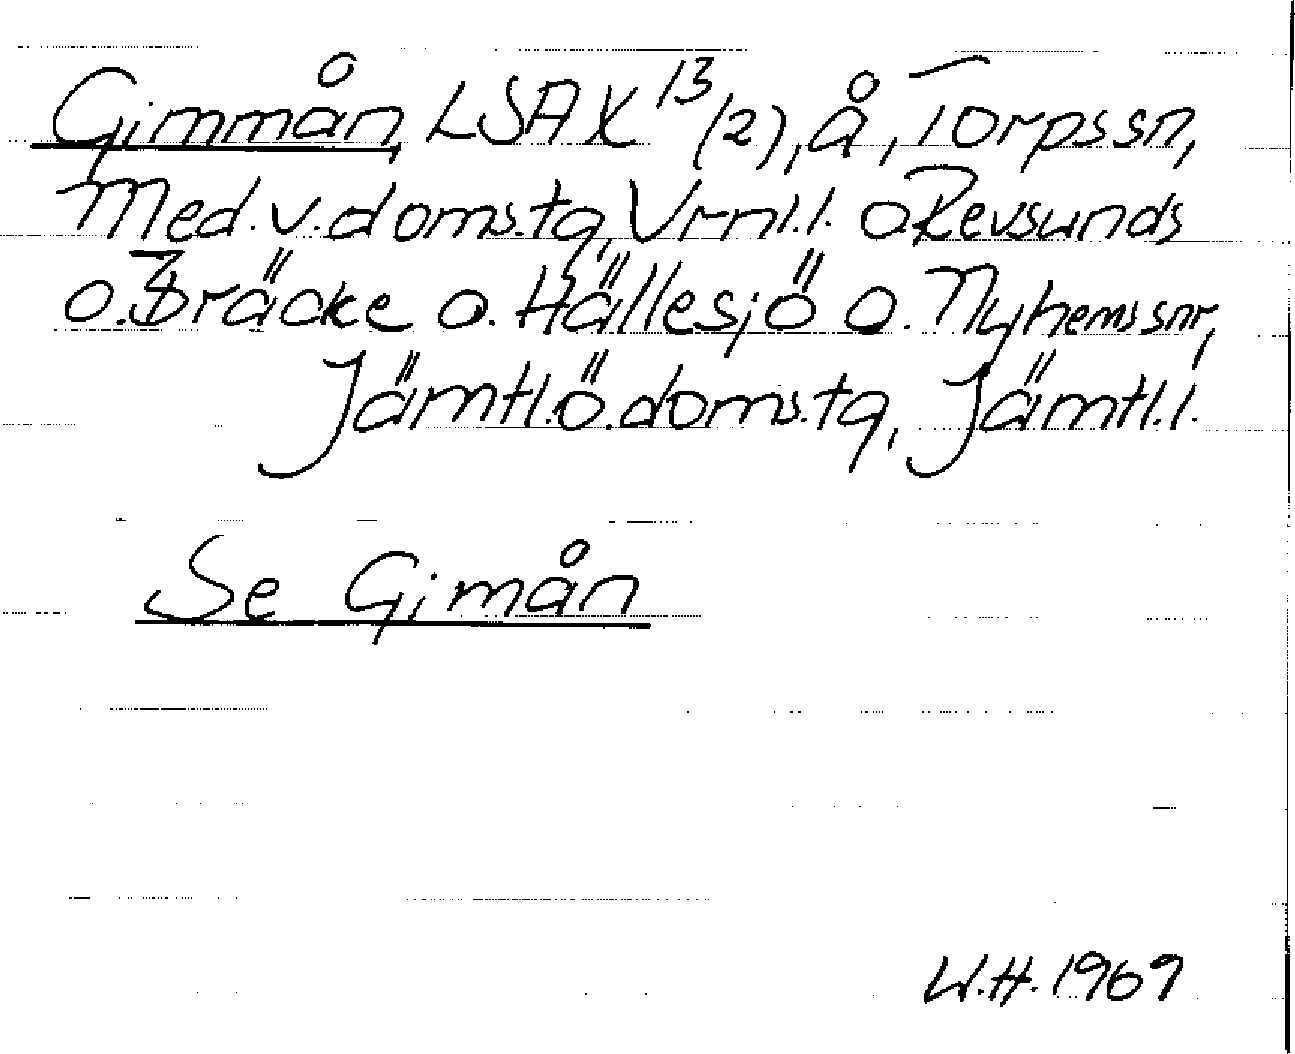 Gimmån, LSA X 13 (2), å, Torps sn,
Med.v.doms.tg, Vrnl.l. o Revsunds
o. Bräcke o. Hällesjö o. Nyhems snr,
Jämtl.ö.doms.tg, Jämtl.l.
Se Gimån
W.H. 1969